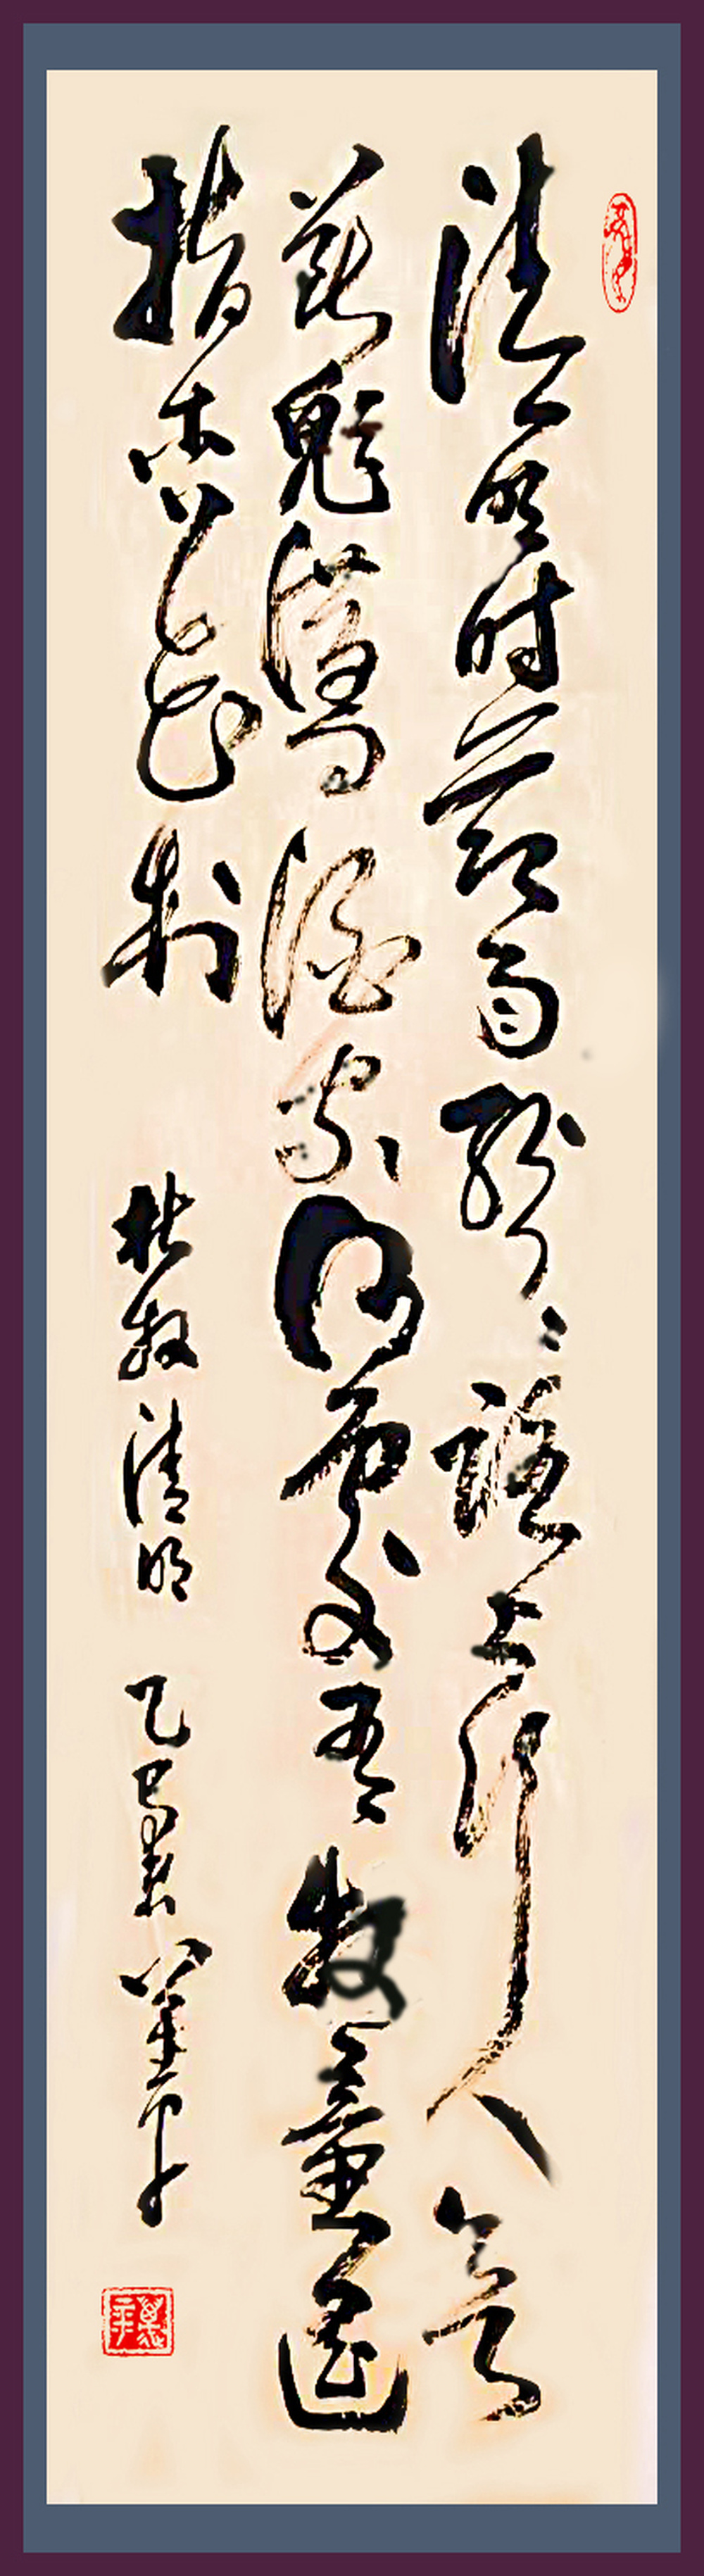 清明时节雨纷纷路上行人欲
断魂借问酒家何处有牧童遥
指杏花村 杜牧清明 乙巳夏